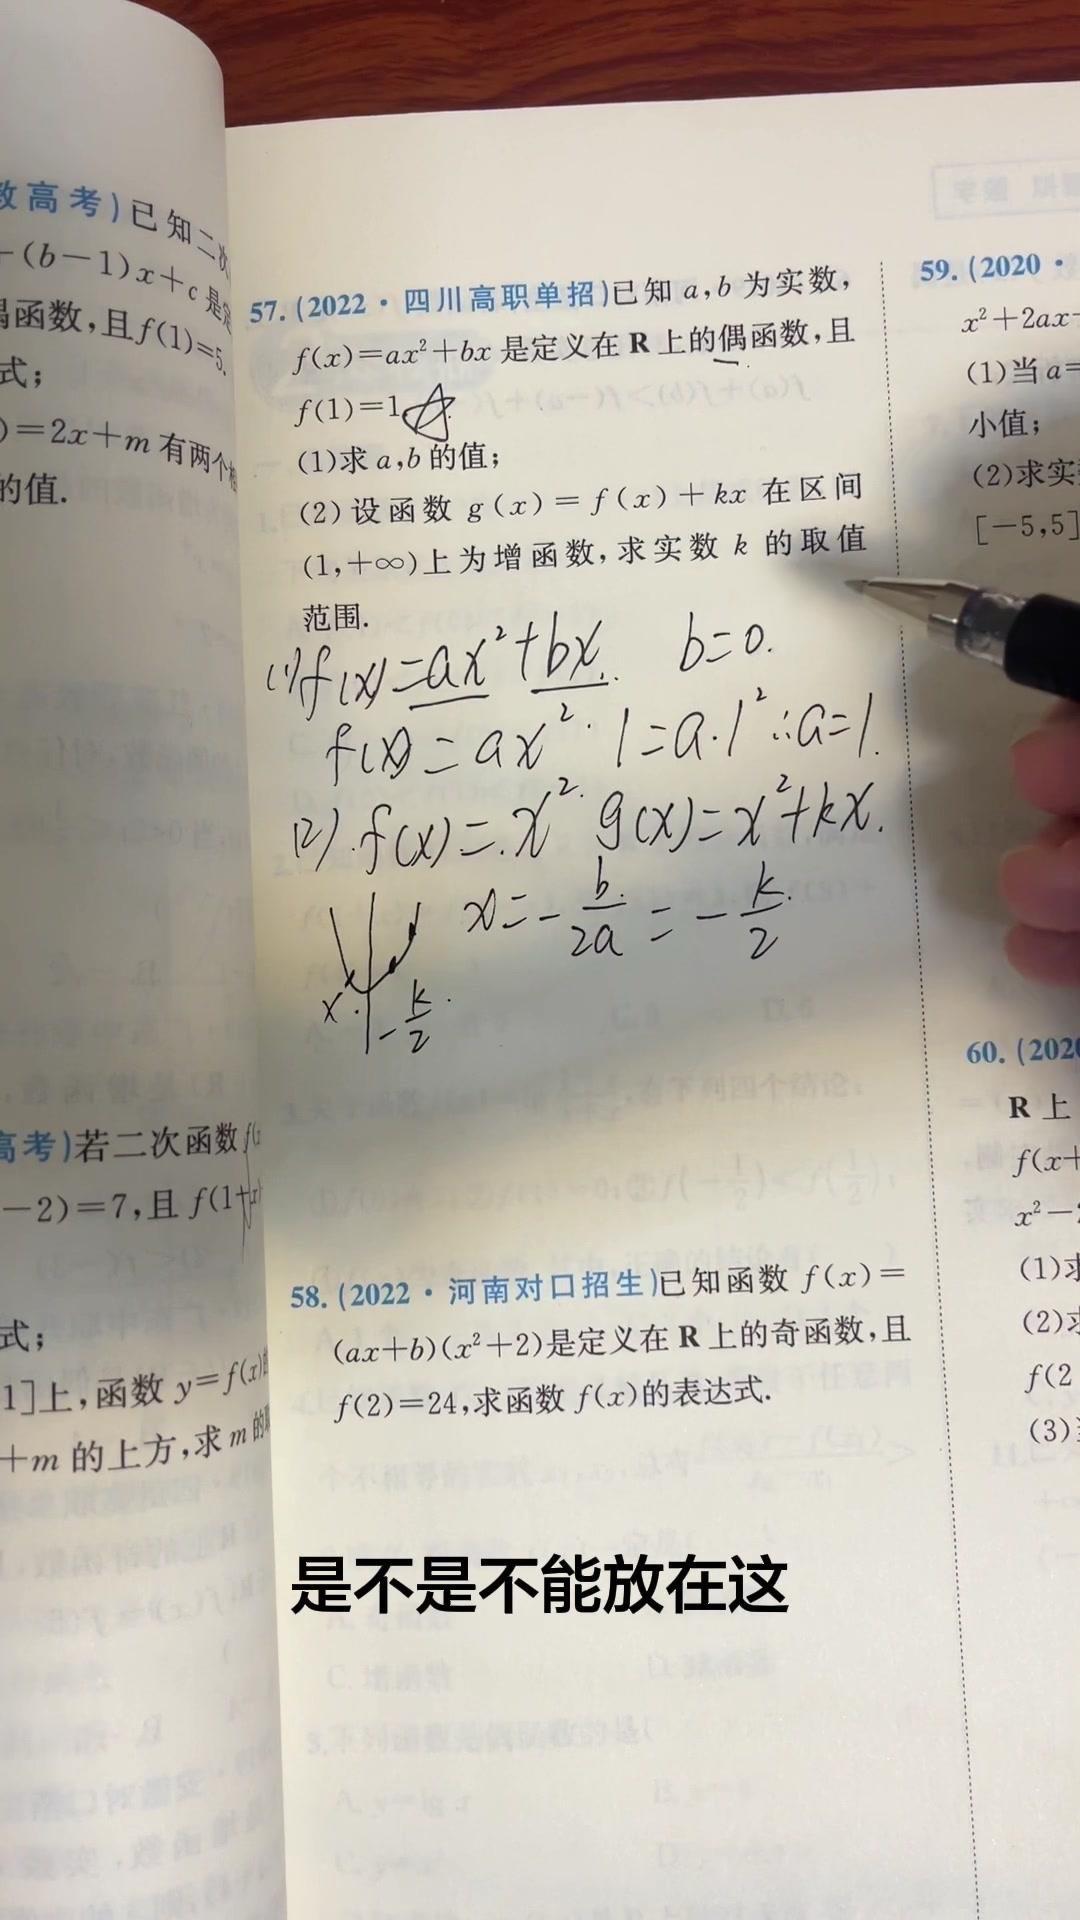 数高考)已知二次
+(b-1)x+c是定
偶函数,且f(1)=5.
式;
)=2x+m有两个相
的值.
高考)若二次函数f(x
-2)=7,且f(1+x)
式;
1]上,函数y=f(x)的
+m的上方,求m的取
57.(2022·四川高职单招)已知a,b为实数,
f(x)=ax²+bx是定义在R上的偶函数,且
f(1)=1.
(1)求a,b的值;
(2)设函数g(x)=f(x)+kx在区间
(1,+∞)上为增函数,求实数k的取值
范围.
(1)f(x)=ax²+bx. b=0.
f(x)=ax². 1=a·1² ∴a=1.
(2).f(x)=x². g(x)=x²+kx.
x=-b/2a=-k/2
x. -k/2.
58.(2022·河南对口招生)已知函数f(x)=
(ax+b)(x²+2)是定义在R上的奇函数,且
f(2)=24,求函数f(x)的表达式.
59.(2020·
x²+2ax+
(1)当a=
小值;
(2)求实
[-5,5]
60.(2020
R上
f(x+
x²-2
(1)求
(2)求
f(2
(3)
是不是不能放在这